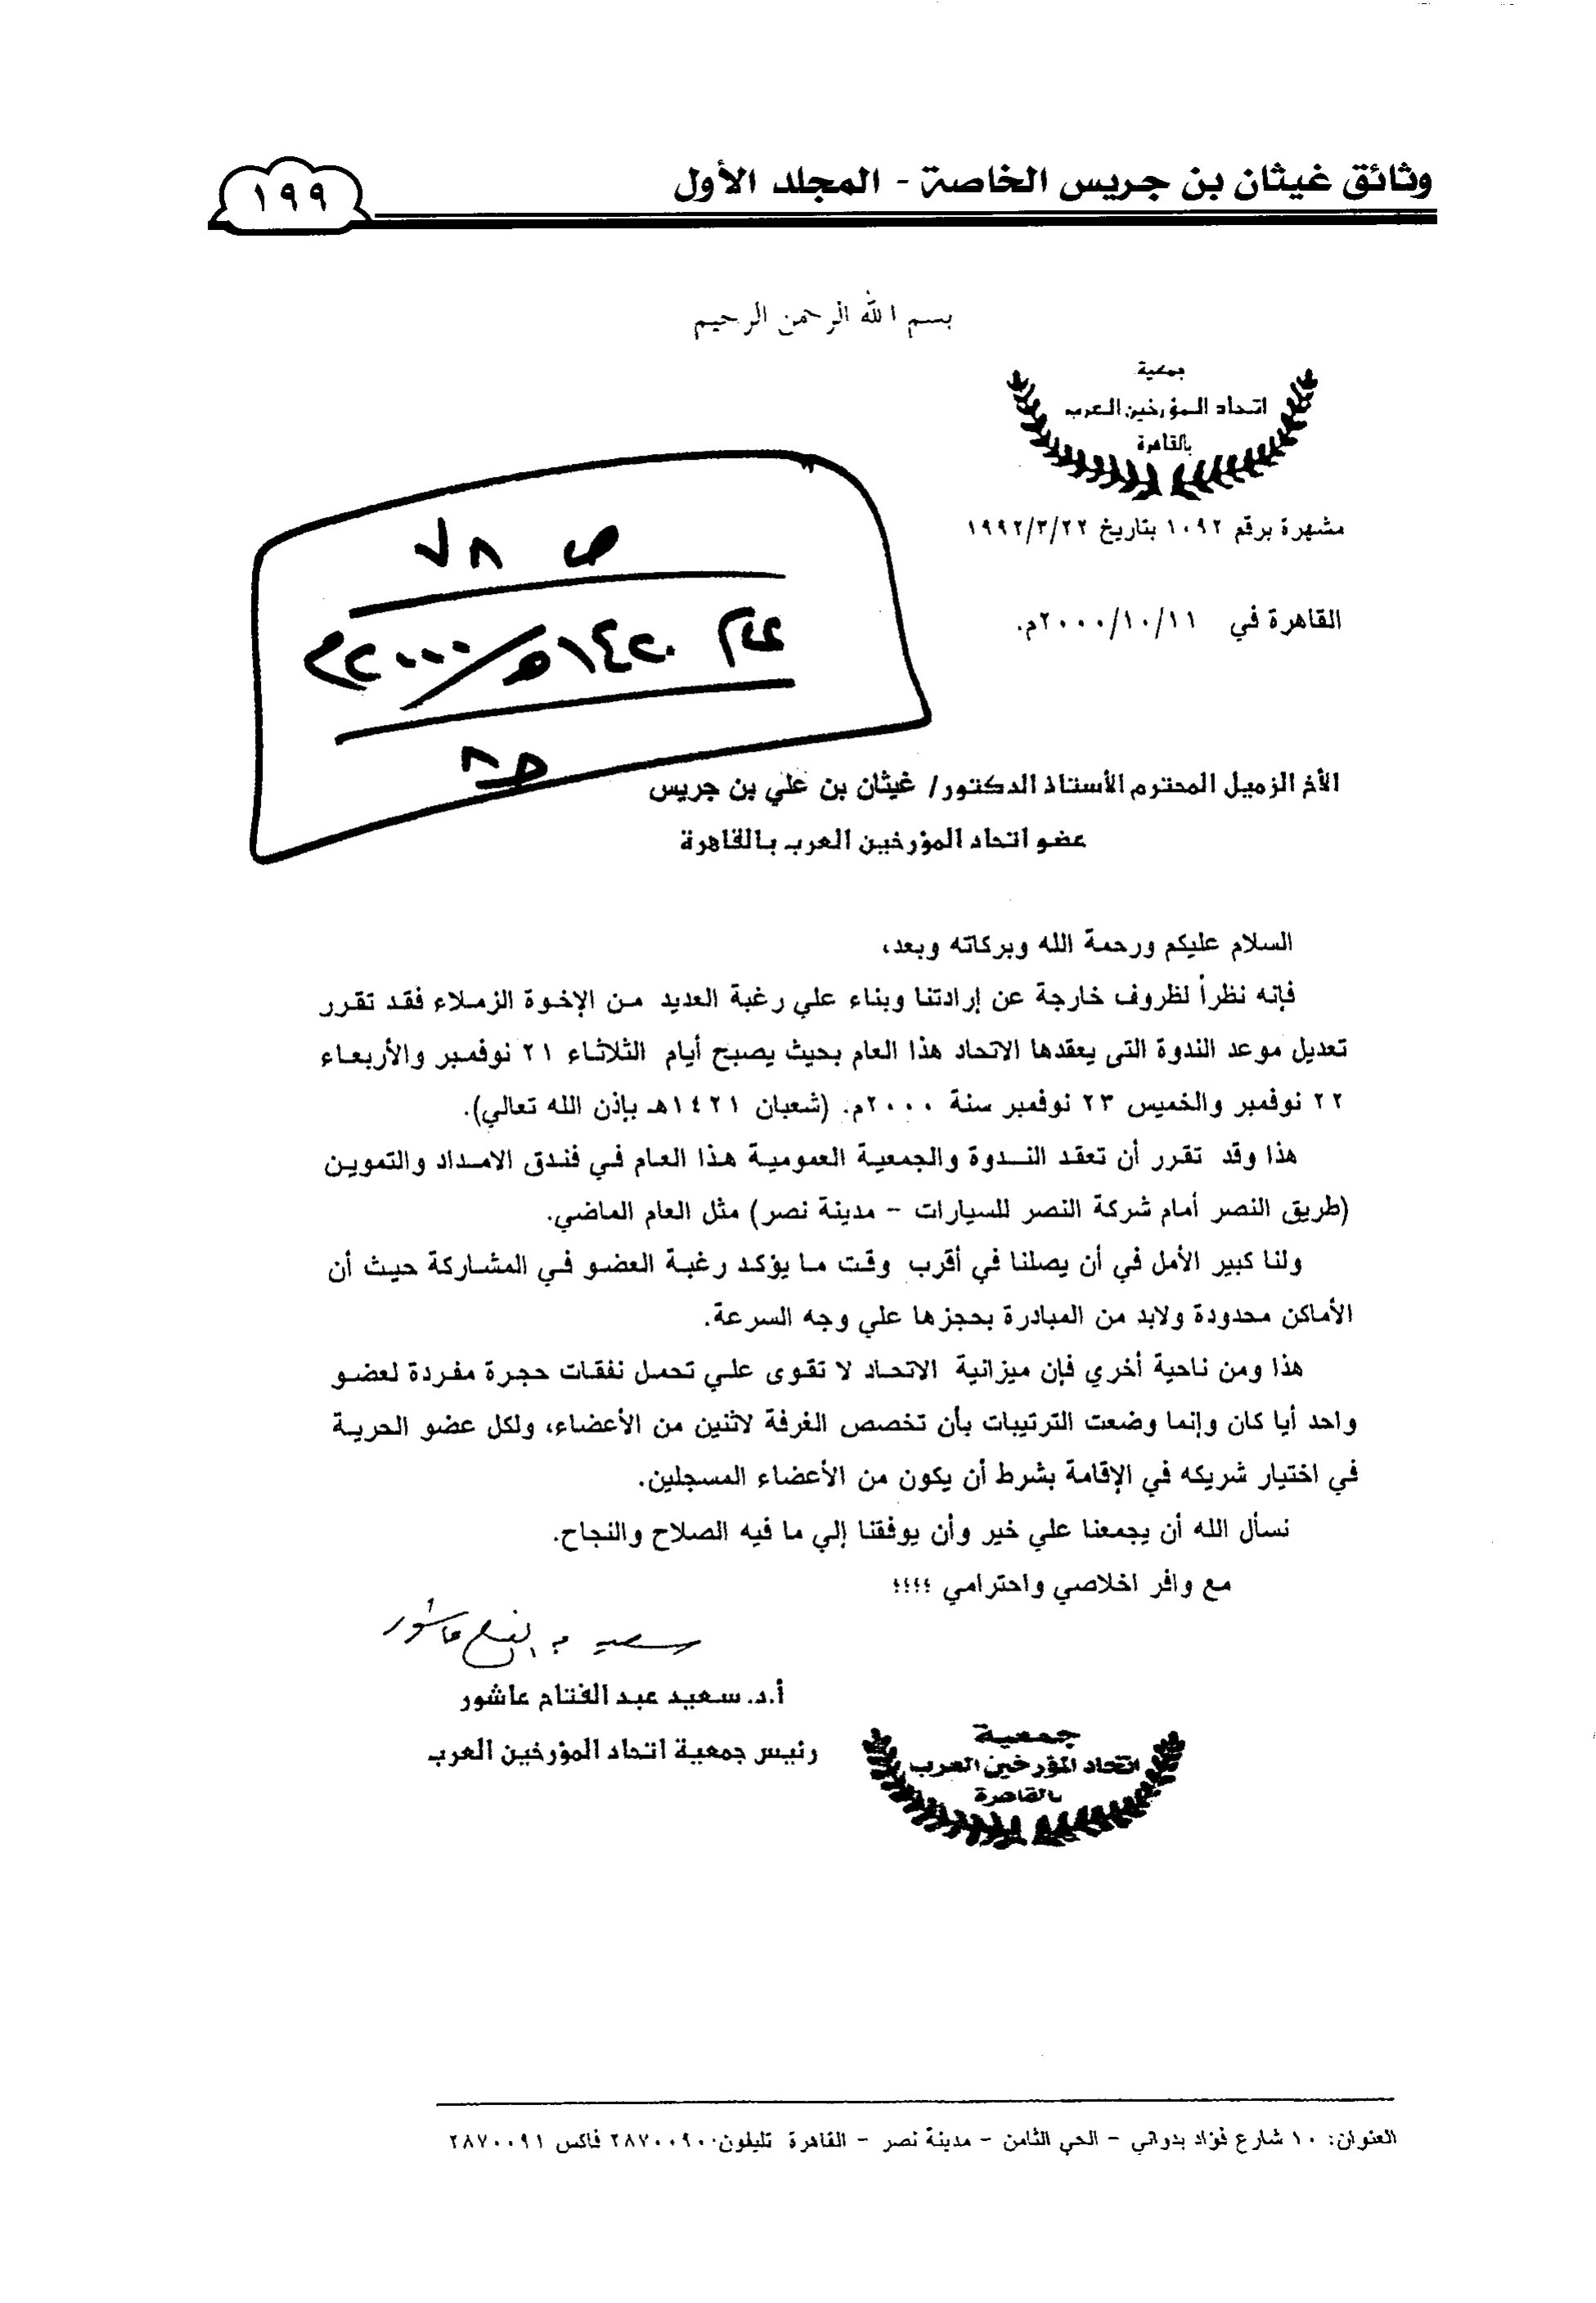 وثائق غيثان بن جريس الخاصة - المجلد الأول
١٩٩
بسم الله الرحمن الرحيم
جمعية
اتحاد المؤرخين العرب
بالقاهرة
مشهرة برقم ١٠٩٢ بتاريخ ١٩٩٢/٣/٢٢
القاهرة في ٢٠٠٠/١٠/١١م.
ص ٧٨
عام ١٤٢٠هـ/٢٠٠٠م
الأخ الزميل المحترم الأستاذ الدكتور/ غيثان بن علي بن جريس
عضو اتحاد المؤرخين العرب بالقاهرة
السلام عليكم ورحمة الله وبركاته وبعد،
فإنه نظراً لظروف خارجة عن إرادتنا وبناء علي رغبة العديد من الإخوة الزملاء فقد تقرر
تعديل موعد الندوة التى يعقدها الاتحاد هذا العام بحيث يصبح أيام الثلاثاء ٢١ نوفمبر والأربعاء
٢٢ نوفمبر والخميس ٢٣ نوفمبر سنة ٢٠٠٠م. (شعبان ١٤٢١هـ بإذن الله تعالي).
هذا وقد تقرر أن تعقد الندوة والجمعية العمومية هذا العام في فندق الامداد والتموين
(طريق النصر أمام شركة النصر للسيارات - مدينة نصر) مثل العام الماضي.
ولنا كبير الأمل في أن يصلنا في أقرب وقت ما يؤكد رغبة العضو في المشاركة حيث أن
الأماكن محدودة ولابد من المبادرة بحجزها علي وجه السرعة.
هذا ومن ناحية أخري فإن ميزانية الاتحاد لا تقوى علي تحمل نفقات حجرة مفردة لعضو
واحد أيا كان وإنما وضعت الترتيبات بأن تخصص الغرفة لاثنين من الأعضاء، ولكل عضو الحرية
في اختيار شريكه في الإقامة بشرط أن يكون من الأعضاء المسجلين.
نسأل الله أن يجمعنا علي خير وأن يوفقنا إلي ما فيه الصلاح والنجاح.
مع وافر اخلاصي واحترامي ؛؛؛؛
أ.د. سعيد عبد الفتاح عاشور
رئيس جمعية اتحاد المؤرخين العرب
جمعية
اتحاد المؤرخين العرب
بالقاهرة
العنوان: ١٠ شارع فؤاد بدواني - الحي الثامن - مدينة نصر - القاهرة تليفون٢٨٧٠٠٩٠٠ فاكس ٢٨٧٠٠٩١